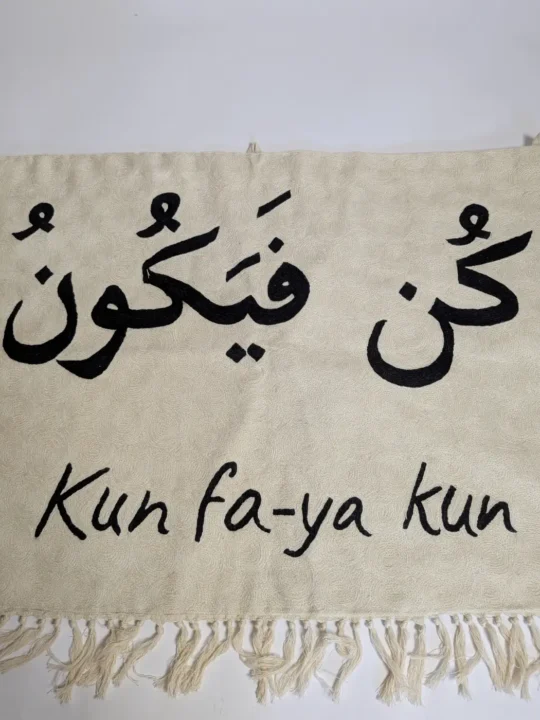 كُن فَيَكُونُ
Kun fa-ya kun